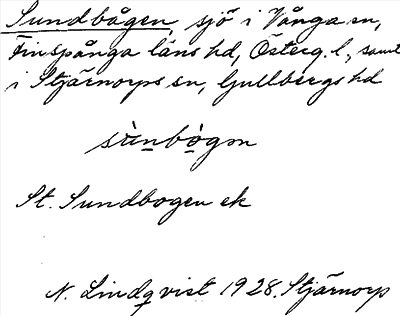 Sundbågen, sjö i Vånga sn,
Finspånga läns hd, Österg. l., samt
i Stjärnorps sn, Gullbergs hd
sùnbògən
St. Sundbogen ek
N. Lindqvist 1928. Stjärnorp